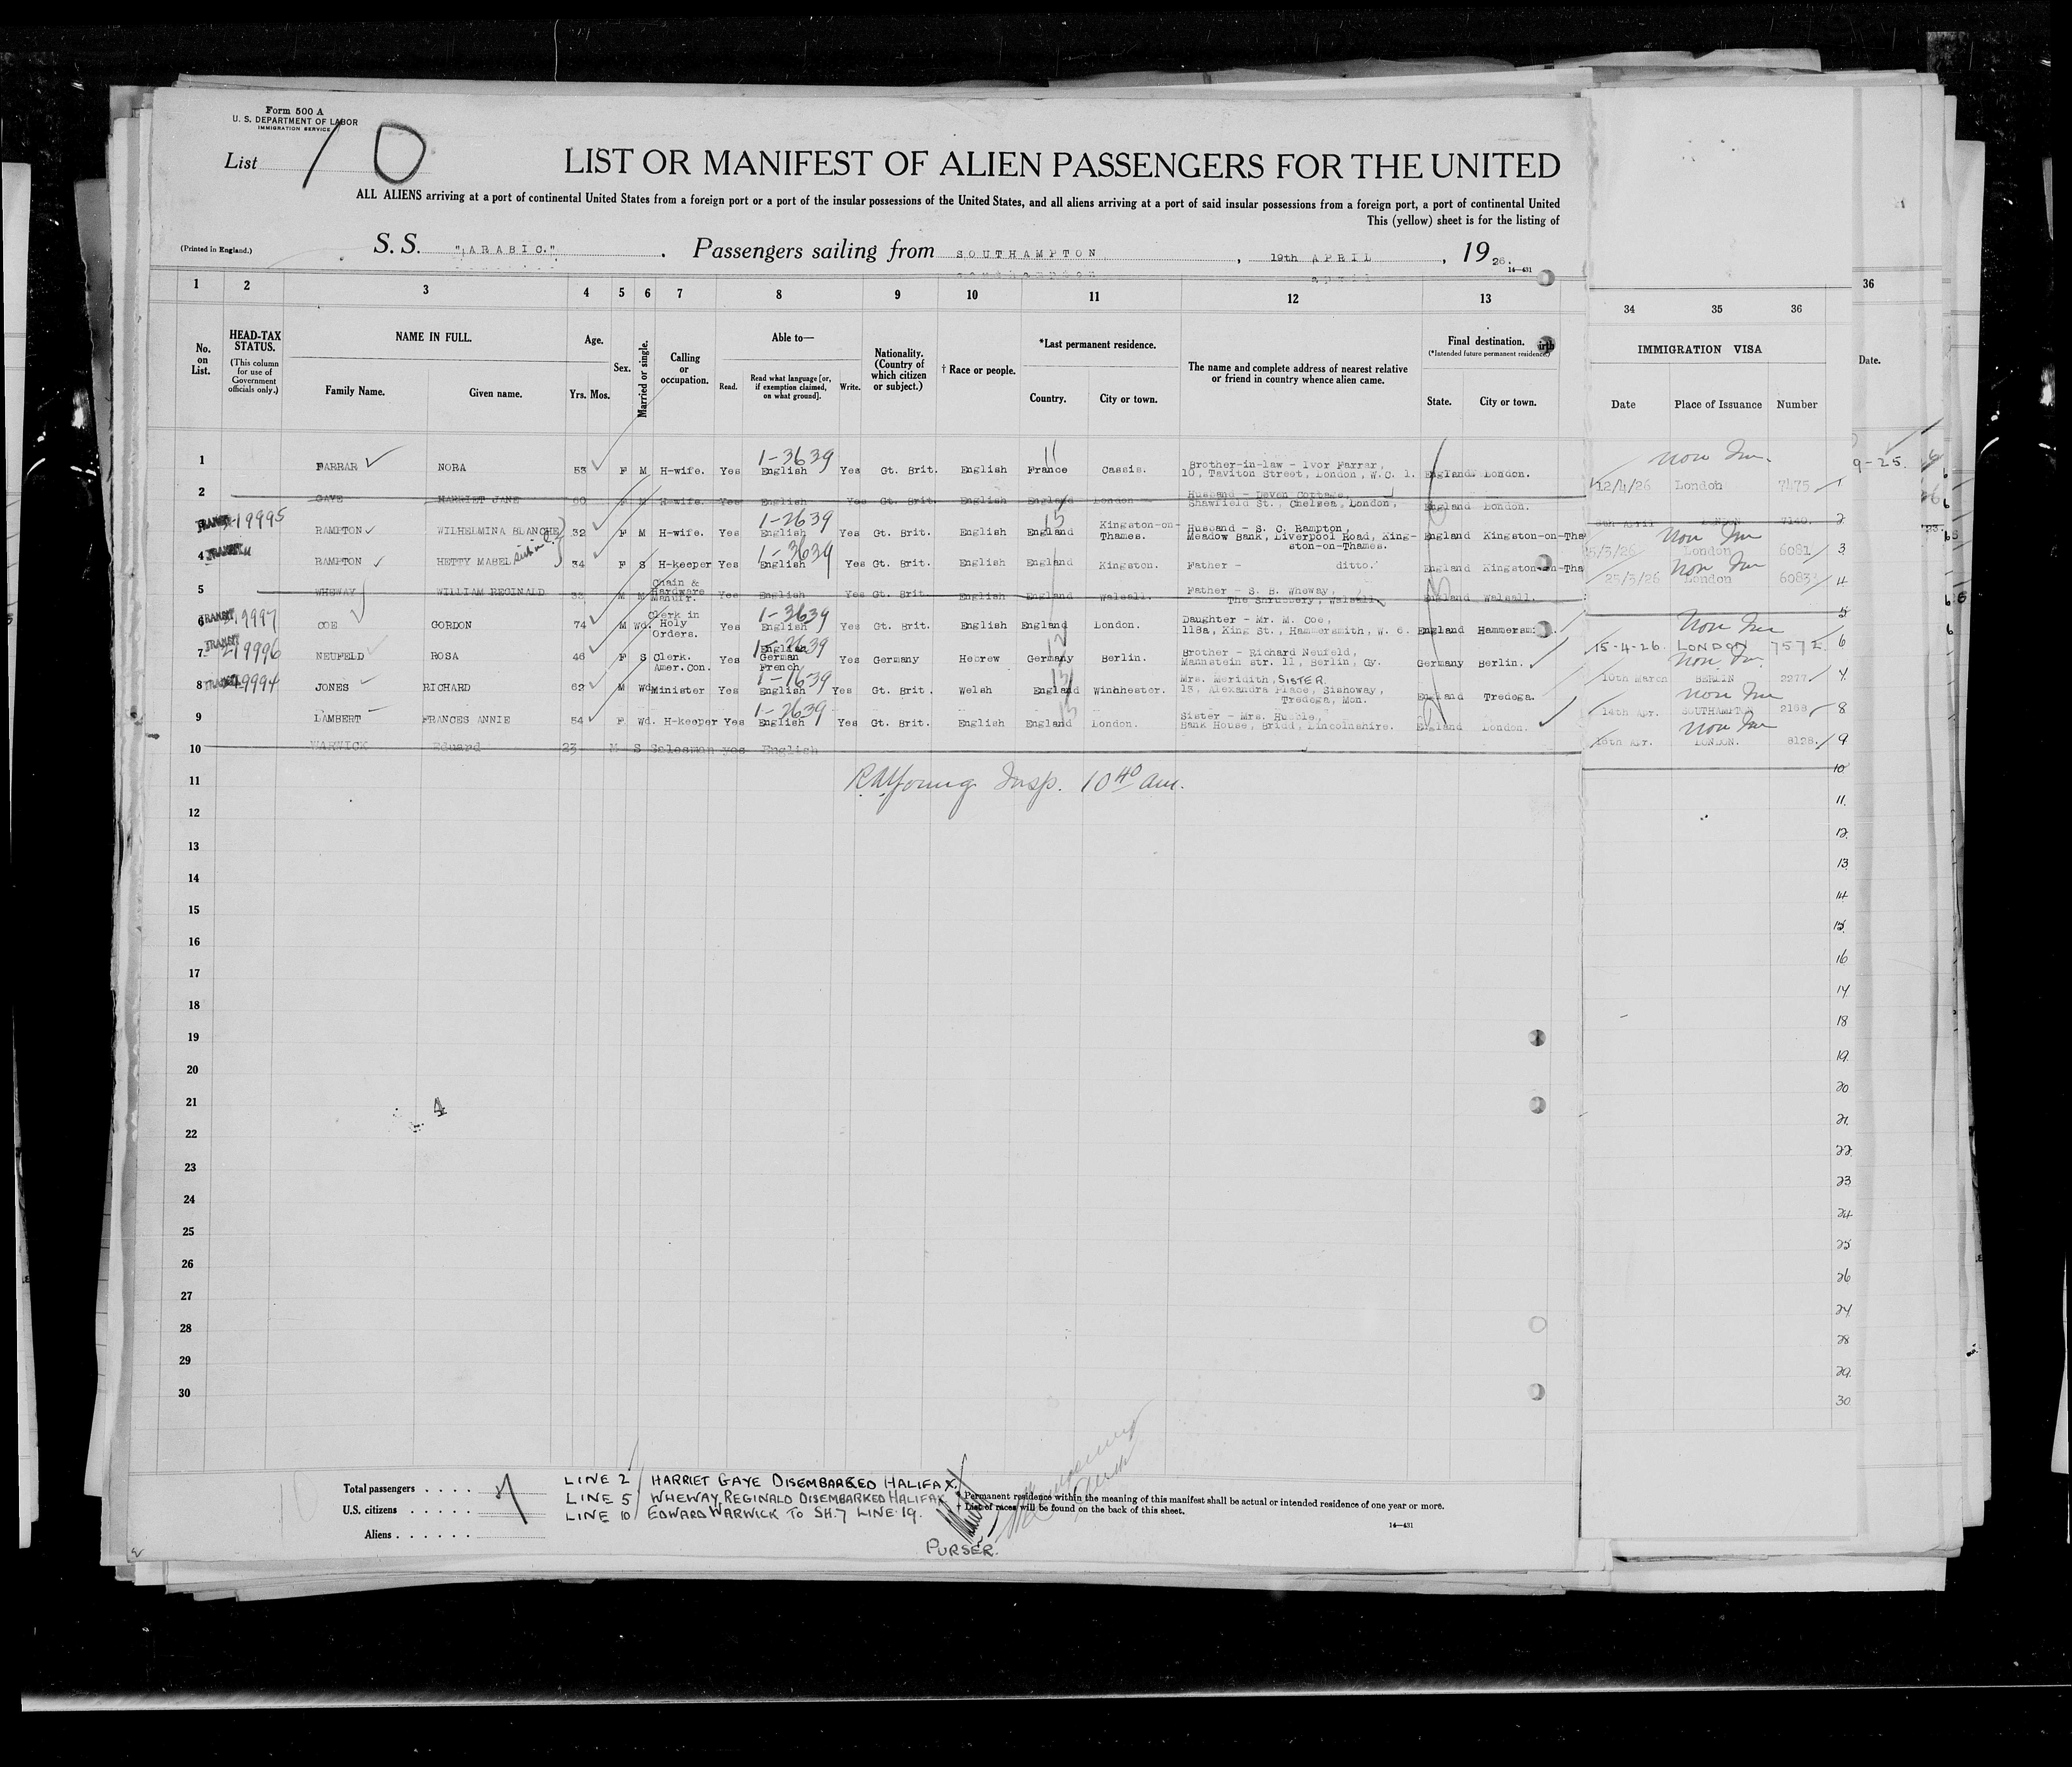 Form 500 A
U. S. DEPARTMENT OF LABOR
IMMIGRATION SERVICE
List 10
LIST OR MANIFEST OF ALIEN PASSENGERS FOR THE UNITED
ALL ALIENS arriving at a port of continental United States from a foreign port or a port of the insular possessions of the United States, and all aliens arriving at a port of said insular possessions from a foreign port, a port of continental United
This (yellow) sheet is for the listing of
(Printed in England.) S. S. "ARABIC." Passengers sailing from SOUTHAMPTON, 19th APRIL, 1926.
14—431
1 2 3 4 5 6 7 8 9 10 11 12 13 34 35 36 36
No. on List.
HEAD-TAX STATUS.
(This column for use of Government officials only.)
NAME IN FULL.
Family Name. Given name.
Age.
Yrs. Mos.
Sex.
Married or single.
Calling or occupation.
Able to—
Read. Read what language [or, if exemption claimed, on what ground]. Write.
Nationality. (Country of which citizen or subject.)
† Race or people.
*Last permanent residence.
Country. City or town.
The name and complete address of nearest relative or friend in country whence alien came.
Final destination.
(*Intended future permanent residence.)
State. City or town.
IMMIGRATION VISA
Date Place of Issuance Number
Date.
1 FARRAR NORA 53 F M H-wife. Yes 1-3639 English Yes Gt. Brit. English France Cassis. Brother-in-law - Ivor Farrar, 10, Taviton Street, London, W.C. 1. England London. 12/4/26 London 7475 1
2 GAYE HARRIET JANE 60 F M H-wife. Yes English Yes Gt. Brit. English England London Husband - Devon Cottage, Shawfield St., Chelsea, London, England London. 7140. 2
3 TRANSIT 19995 RAMPTON WILHELMINA BLANCHE 32 F M H-wife. Yes 1-2639 English Yes Gt. Brit. English England Kingston-on-Thames. Husband - S. C. Rampton, Meadow Bank, Liverpool Road, Kingston-on-Thames. England Kingston-on-Tha 5/3/26 London 6081 3
4 TRANSIT RAMPTON HETTY MABEL 34 F S H-keeper Yes 1-3639 English Yes Gt. Brit. English England Kingston. Father - ditto. England Kingston-on-Tha 25/3/26 London 6083 4
5 WHEWAY WILLIAM REGINALD 33 M M Chain & Hardware Manufr. Yes English Yes Gt. Brit. English England Walsall. Father - S. B. Wheway, The Shrubbery, Walsall, England Walsall. 5
6 TRANSIT 9997 COE GORDON 74 M Wd. Clerk in Holy Orders. Yes 1-3639 English Yes Gt. Brit. English England London. Daughter - Mr. M. Coe, 118a, King St., Hammersmith, W. 6. England Hammersm 15-4-26 LONDON 7572 6
7 TRANSIT 19996 NEUFELD ROSA 46 F S Clerk. Amer.Con. Yes 1-2639 English German French Yes Germany Hebrew Germany Berlin. Brother - Richard Neufeld, Mannstein str. 11, Berlin, Gy. Germany Berlin. 10th March BERLIN 2277 7
8 TRANSIT 19994 JONES RICHARD 62 M Wd. Minister Yes 1-1639 English Yes Gt. Brit. Welsh England Winchhester. Mrs. Meridith, SISTER 13, Alexandra Place, Sishoway, Tredega, Mon. England Tredega. 14th Apr. SOUTHAMPTON 2168 8
9 LAMBERT FRANCES ANNIE 54 F Wd. H-keeper Yes 1-2639 English Yes Gt. Brit. English England London. Sister - Mrs. Hubble, Bank House, Bridd, Lincolnshire. England London. 16th Apr. LONDON. 8128. 9
10 WARWICK Eduard 23 M S Salesman yes English 10
11 R.A. Young Insp. 10 40 am. 11.
12 12.
13 13
14 14
15 15
16 16
17 17
18 18
19 19
20 20
21 21
22 22
23 23
24 24
25 25
26 26
27 27
28 28
29 29
30 30
Total passengers
U.S. citizens
Aliens
LINE 2 HARRIET GAYE DISEMBARKED HALIFAX
LINE 5 WHEWAY, REGINALD DISEMBARKED HALIFAX
LINE 10 EDWARD WARWICK TO SH. 7 LINE 19.
PURSER.
* Permanent residence within the meaning of this manifest shall be actual or intended residence of one year or more.
† List of races will be found on the back of this sheet.
14—431